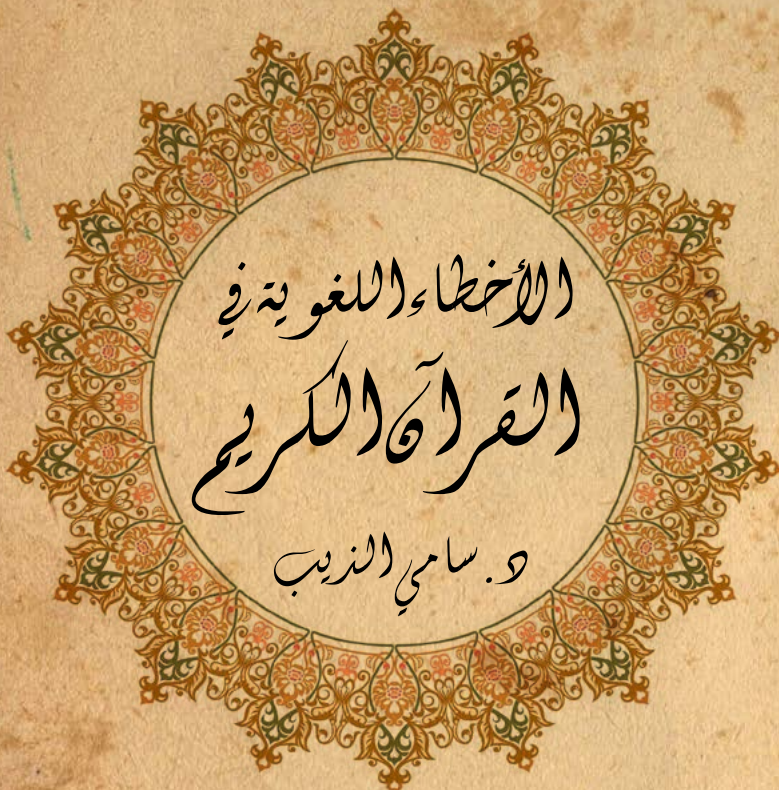 الأخطاء اللغوية في
القرآن الكريم
د. سامي الذيب